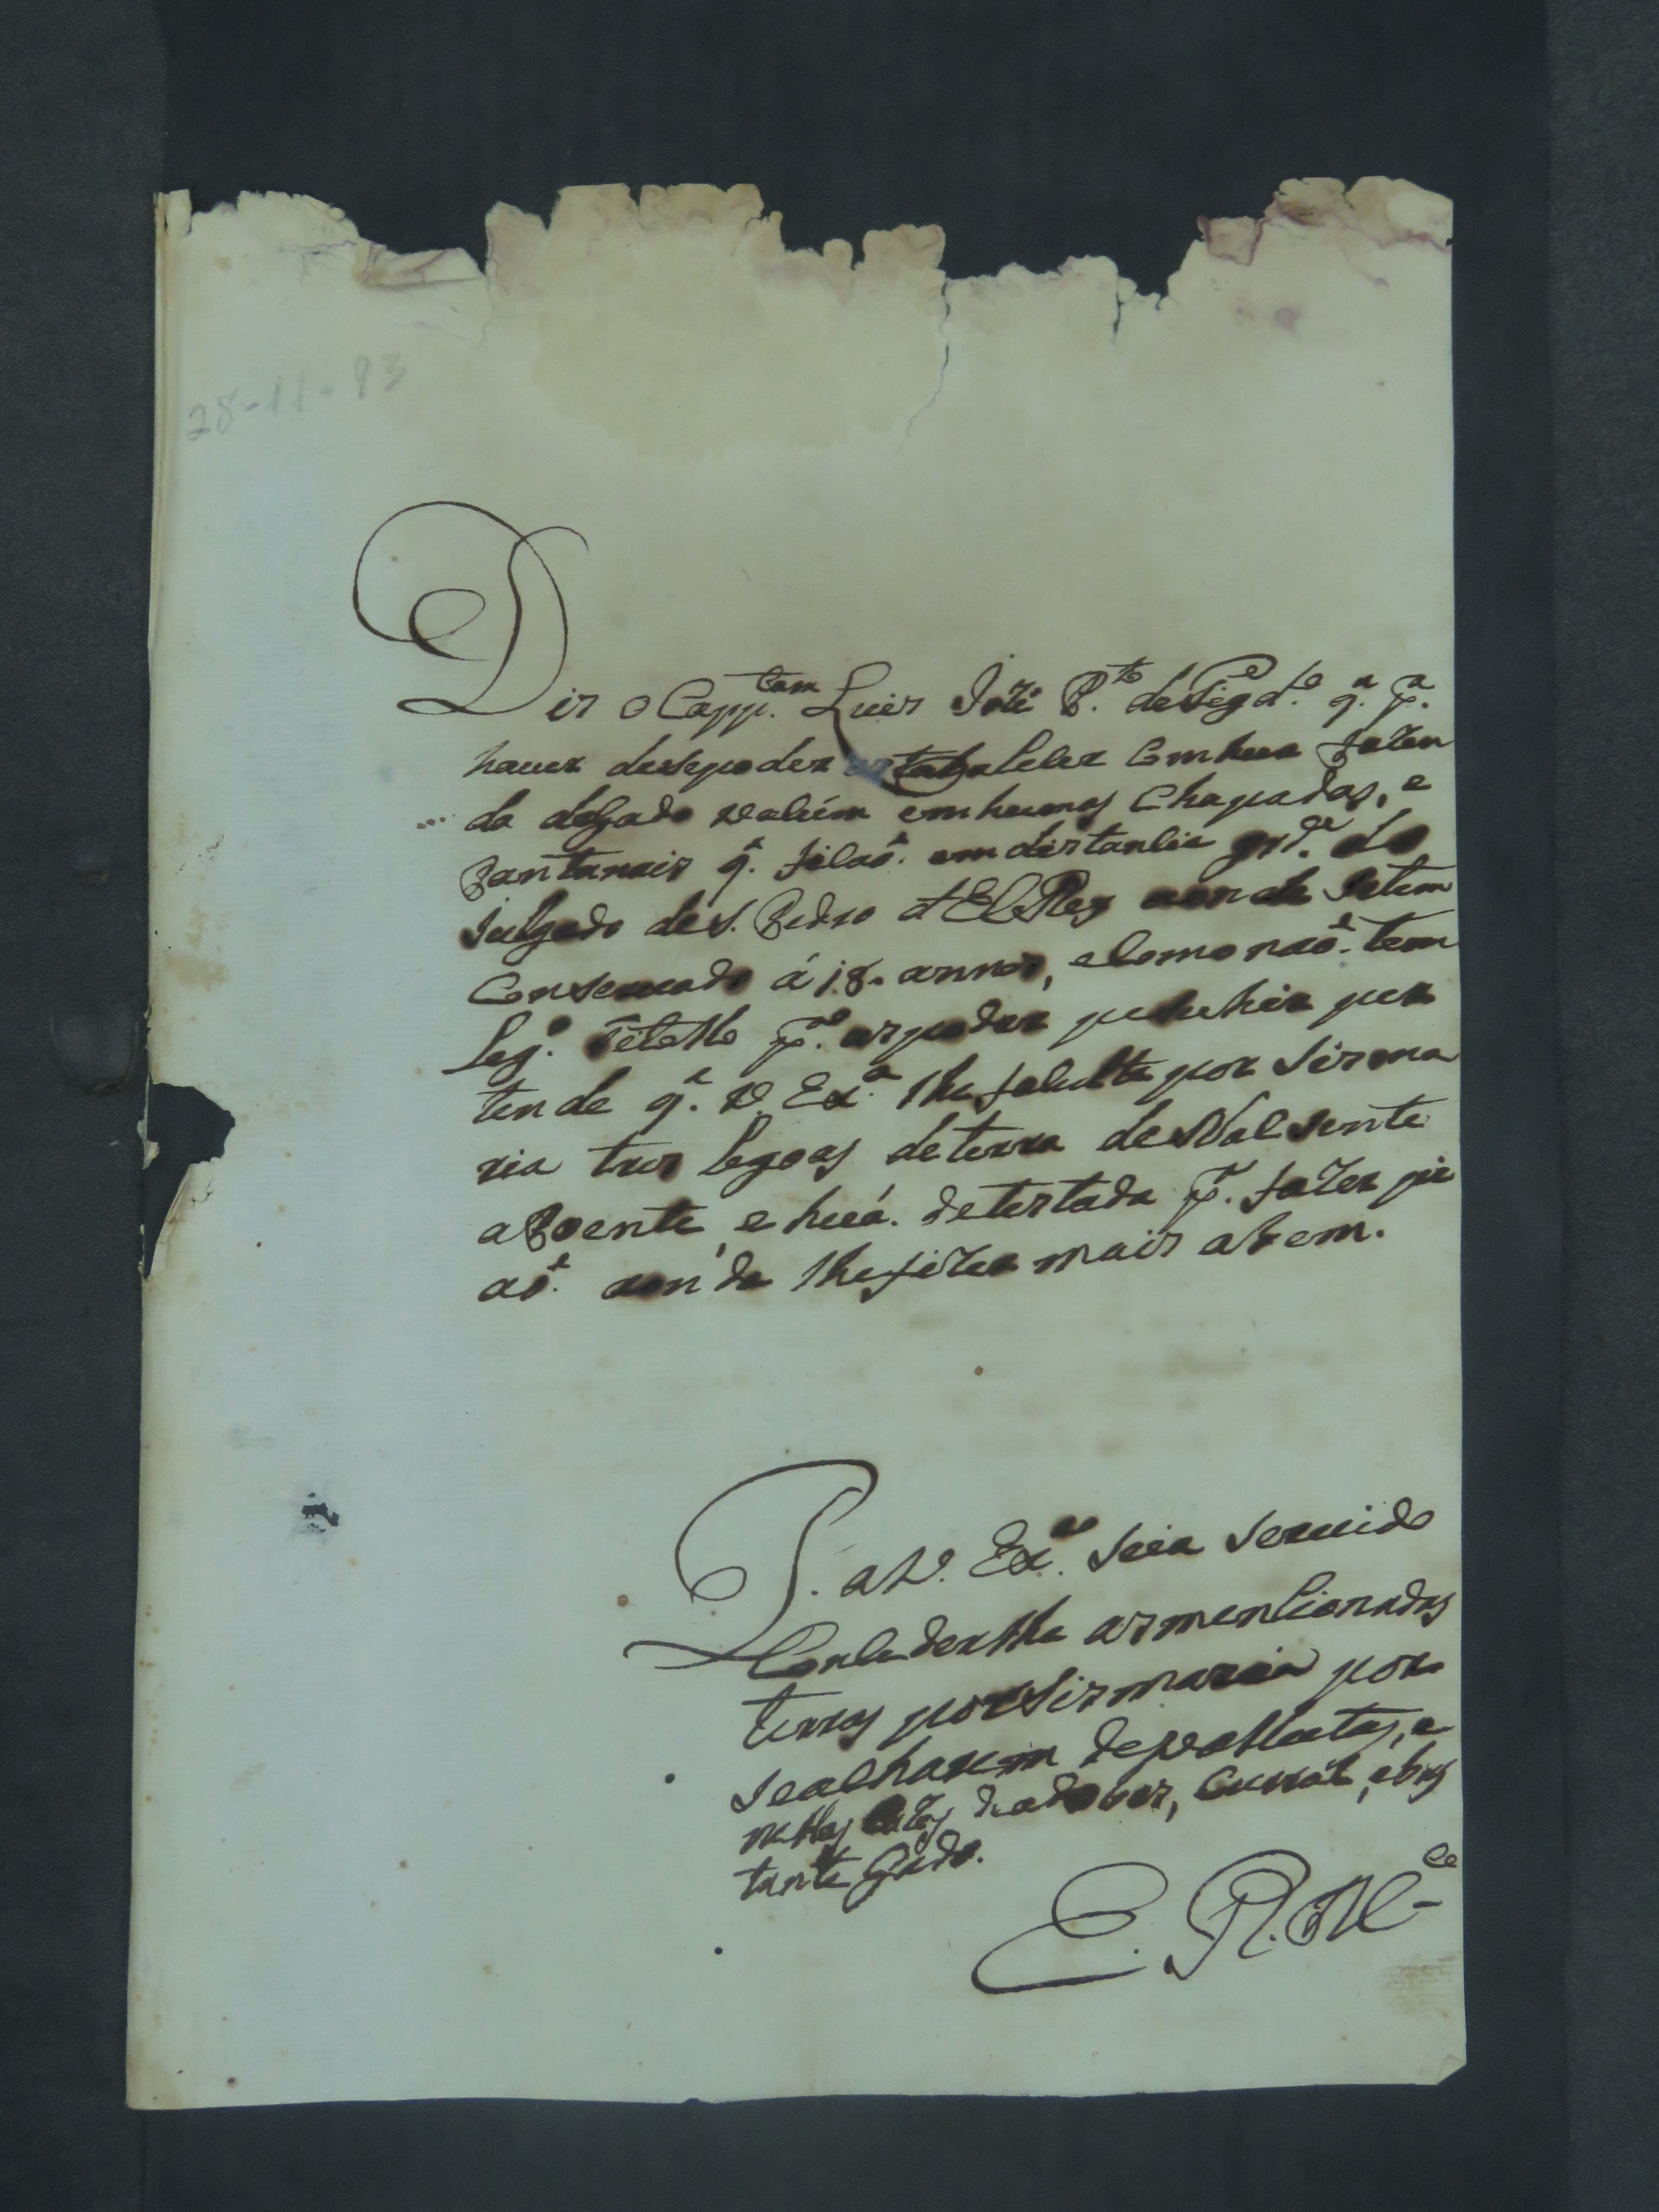 28-11-93
Dis o Capp.tam Luis Joze P.to de Figd.o q.m p.a
haver desepoder estabaleser Com hua fazen
da degado valúm em humas Chapadas, e
Pantanais q.e ficaõ. em distancia grd.e do
Julgado de S. Pedro d'ElRey aonde setem
Conservado á 18. annos, eComo naõ. tem
Leg.o Titollo p.a as poder pesuhir per
tende q.e V. Ex.a lhe faculte por Sisma
ria tres legoas de terra de Nascente
aPoente, e huá. de testada p.a fazer pi
aõ. aonde lhe fizer mais abem.
P. a V. Ex.a seia servido
Consederlhe as mencionadas
terras por Sismaria por
seacharem devollutas, e
nellas Cazas de adobos, Currál, ebas
tante Gado.
E. R. M.ce